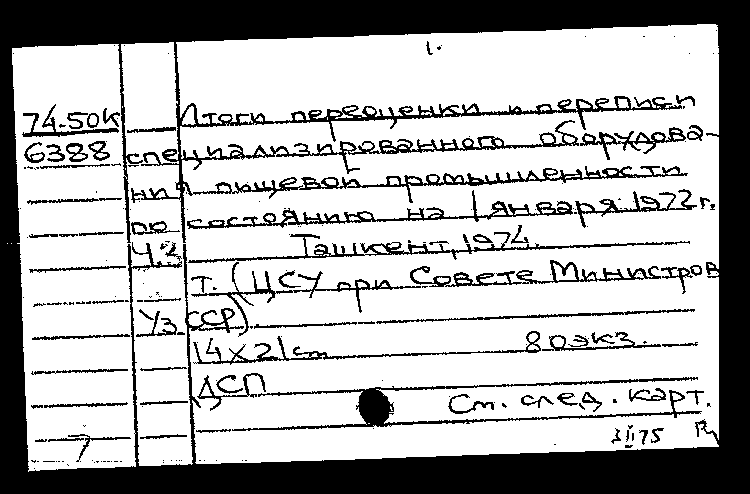 1.
74.50к Итоги переоценки и переписи
6388 специализированного оборудова-
ния пищевой промышленности
по состоянию на 1 января 1972 г.
Ч.3 Ташкент, 1974.
Т. (ЦСУ при Совете Министров
УзССР).
14х21cm 80экз.
ДСП
См. след. карт.
7 3 II 75